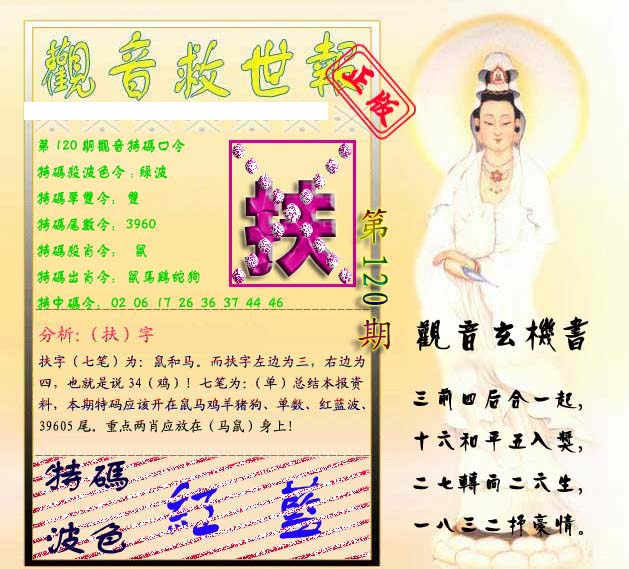 觀音救世報
正版
第120期觀音特碼口令
特碼殺波色令:綠波
特碼單雙令: 雙
特碼尾數令: 3960
特碼殺肖令: 鼠
特碼出肖令: 鼠馬鷄蛇狗
特中碼令: 02 06 17 26 36 37 44 46
扶
第120期
分析:(扶)字
扶字(七笔)为:鼠和马。而扶字左边为三,右边为
四,也就是说34(鸡)!七笔为:(单)总结本报资
料,本期特码应该开在鼠马鸡羊猪狗、单数、红蓝波、
39605尾。重点两肖应放在(马鼠)身上!
特碼
波色
紅 藍
觀音玄機書
三前四后合一起,
十六和平五入獎,
二七轉而二六生,
一八三二抒豪情。